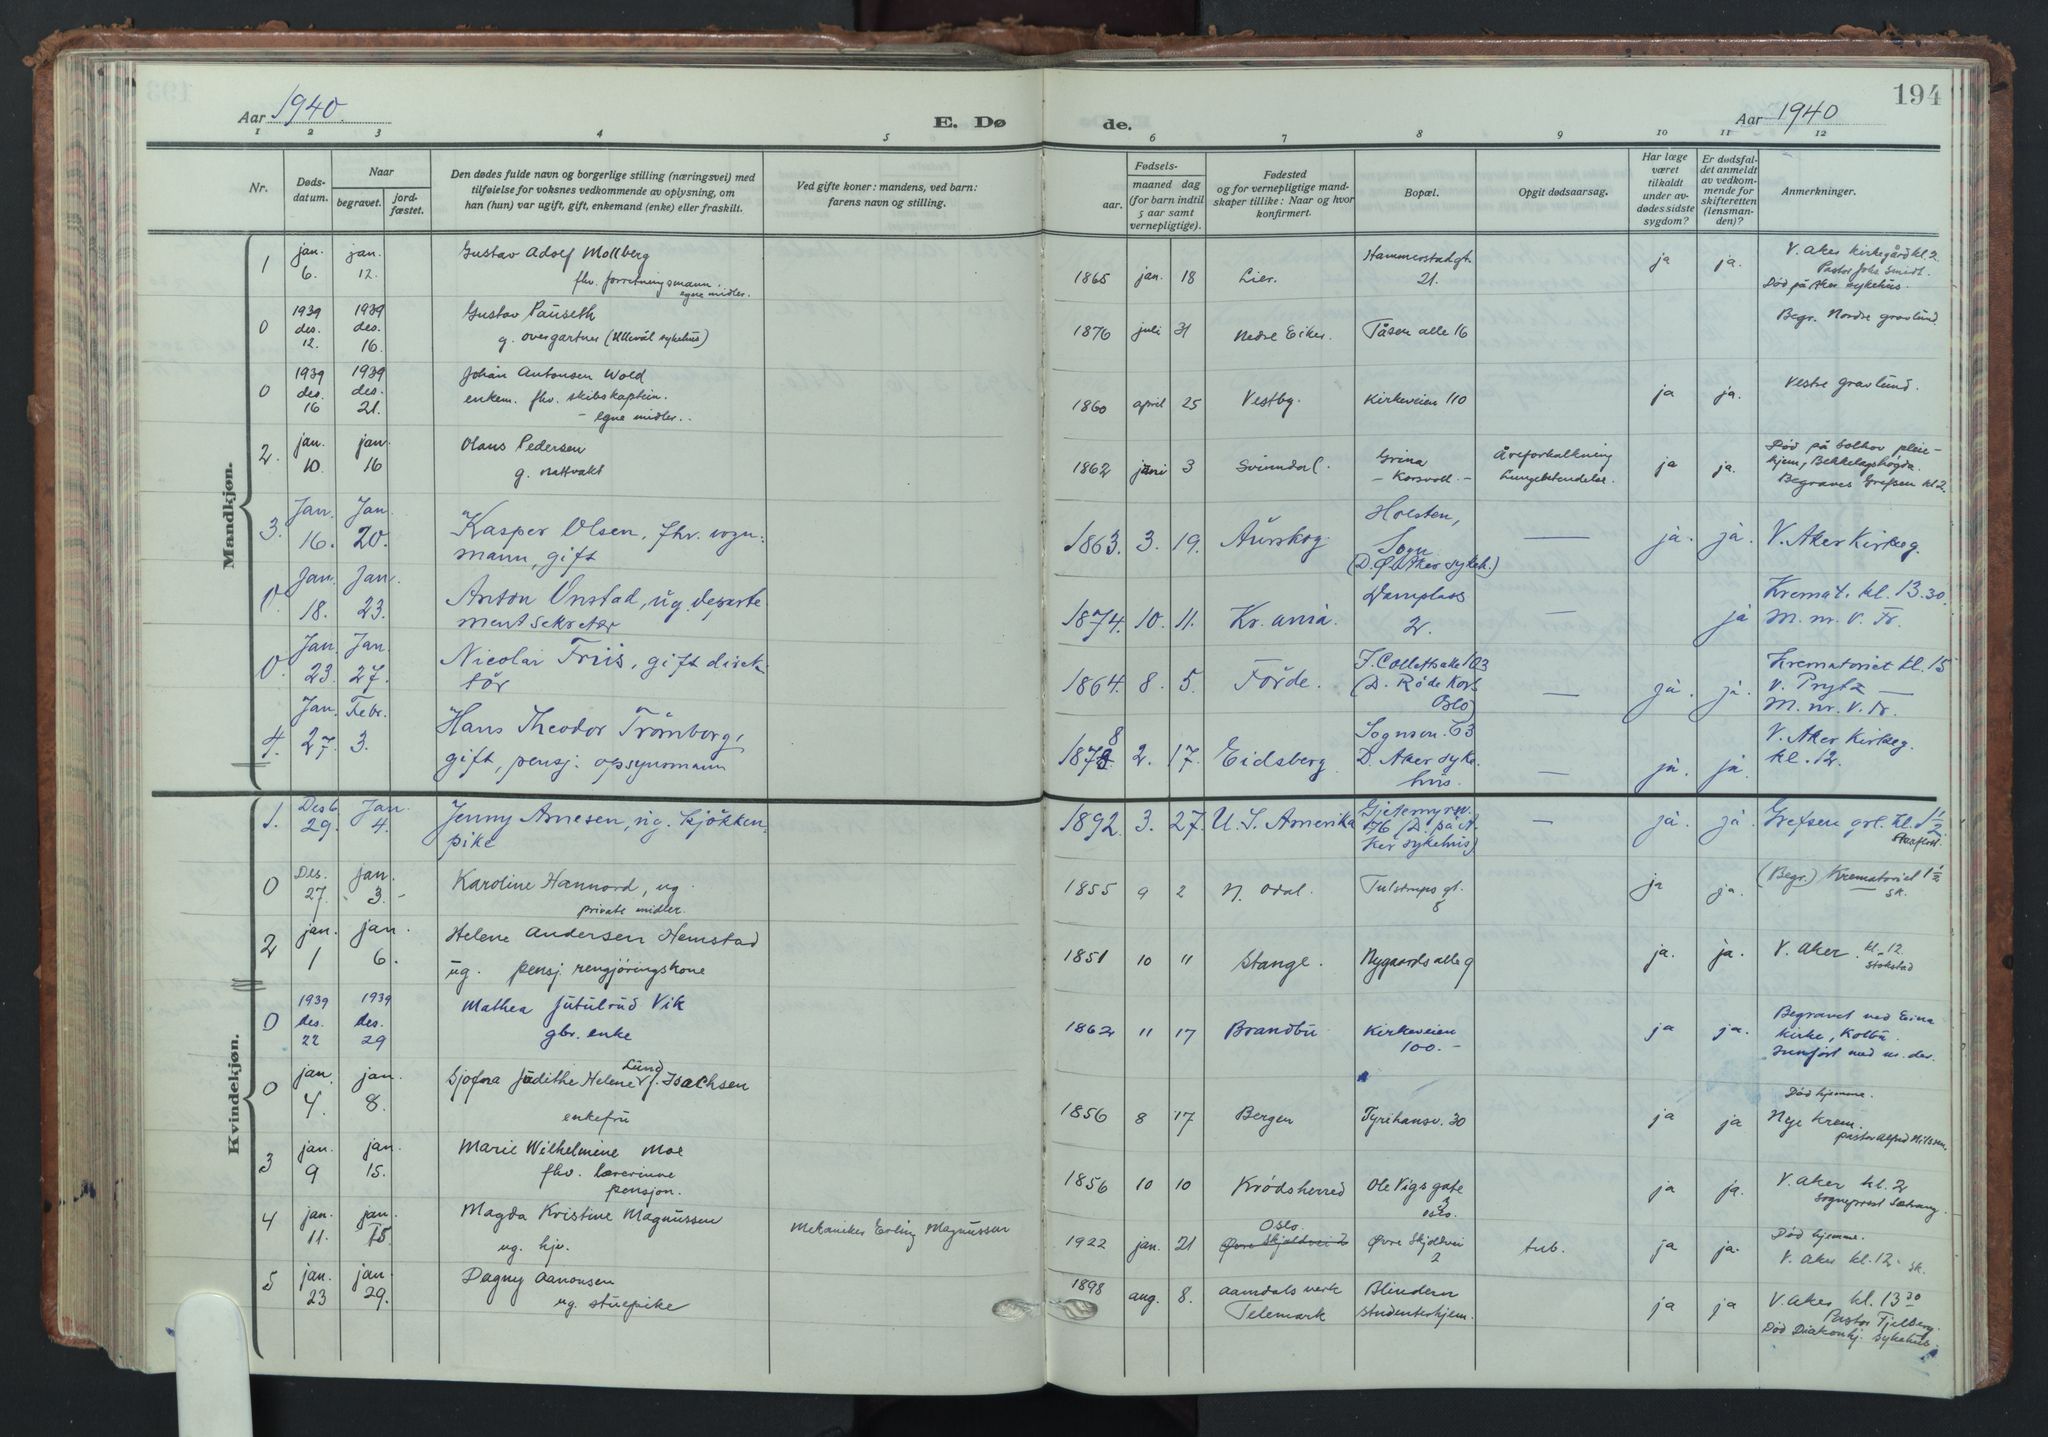 194
Aar 1940.
E. Døde.
Aar 1940
1 2 3 4 5 6 7 8 9 10 11 12
Nr.
Døds-
datum.
Naar
begravet.
jord-
fæstet.
Den dødes fulde navn og borgerlige stilling (næringsvei) med
tilføielse for voksnes vedkommende av oplysning, om
han (hun) var ugift, gift, enkemand (enke) eller fraskilt.
Ved gifte koner: mandens, ved barn:
farens navn og stilling.
Fødsels-
aar.
maaned dag
(for barn indtil
5 aar samt
vernepligtige).
Fødested
og for vernepligtige mand-
skaper tillike: Naar og hvor
konfirmert.
Bopæl.
Opgit dødsaarsag.
Har læge
været
tilkaldt
under av-
dødes sidste
sygdom?
Er dødsfal-
det anmeldt
av vedkom-
mende for
skifteretten
(lensman-
den)?
Anmerkninger.
Mandkjøn.
1 jan. 6. jan. 12. Gustav Adolf Mollberg
fhv. forretningsmann.
egne midler.
1865 jan. 18 Lier. Hammerstadgt.
21. ja ja. V. Aker kirkegård kl. 2
Pastor Johs Smidt.
Død på Aker sykehus.
0 1939 des. 12. 1939 des. 16. Gustav Pauseth
g. overgartner (Ullevål sykehus)
1876 juli 31 Nedre Eiker. Tåsen alle 16 Begr. Nordre gravlund.
0 1939 des. 16 1939 des. 21. Johan Antonsen Wold
enkem. fhv. skibskaptein.
- egne midler..
1860 april 25 Vestby. Kirkeveien 110 ja ja. Vestre gravlund.
2. jan. 10. jan. 16 Olaus Pedersen
g. nattvakt
1862 juni 3 Svinndal. Grina
- Korsvoll. - Åreforkalkning
Lungebetendelse. ja ja. Død på Solhov pleie-
hjem, Bekkelagshøgda.
Begraves Grefsen kl 2.
3. Jan. 16. Jan. 20. Kasper Olsen, fhv. vogn-
mann, gift
1863. 3. 19. Aurskog. Holsten,
Sogn.
(D. på Aker sykeh.) — ja. ja. V. Aker Kirkeg.
0. Jan. 18. Jan. 23. Anton Onstad, ug. departe
mentsekretær
1874. 10. 11. Kr.ania. Damplass
2. — ja Kremat. kl. 13.30.
M. nr. V. Fr.
0. Jan. 23. Jan. 27. Nicolai Friis, gift direk-
tør
1864. 8. 5. Förde. J. Colletts alle 103
(D. Røde Kors
Oslo) — ja. ja. Krematoriet kl. 15
v. Prytz —
M. nr. V. Fr.
4. Jan. 27. Febr. 3. Hans Theodor Trömborg,
gift, pensj. opsynsmann
1878. 2. 17. Eidsberg. Sognsv. 63
D. Aker syke
hus. — ja. ja. V. Aker Kirkeg.
kl. 12.
Kvindekjøn.
1. Des. 29. Jan. 4. Jenny Arnesen, ug. kjøkken
pike
1892. 3. 27. U. S. Amerika Gjetemyrsv.
(D. på A-
ker sykehus) — ja. ja. Grefsen grl. kl. 1 1/2
0 Des. 27. jan. 3. - Karoline Hannord, ug.
private midler.
1855 9 2 N. Odal. Tulstrups gt.
8 ja ja. (Begr.) Krematoriet 1 1/2
sk.
2 jan. 1 jan. 6. Helene Andersen Hemstad
ug. pensj. rengjøringskone
1851 10 11 Stange. Nygaards alle 9 ja. ja. V. Aker. kl. 12
Stokstad
0 1939 des. 22 1939 des. 29 Mathea Jutulrud Vik
gbr. enke
1862 11 17 Brandbu Kirkeveien
100. - ja ja. Begravet ved Eina
kirke, Kolbu
0 jan. 4. jan. 8. Sjofna Judithe Helene Lund f. Isachsen
enkefru
1856 8 17 Bergen Tyrihansv. 30 ja ja Død hjemme.
Nye Krem.
pastor Alfred Nilssen.
3 jan. 9 jan. 15. Marie Wilhelmine Moe
fhv. lærerinne
pensjon.
1856 10 10 Krødsherred Ole Vigs gate
Oslo. ja ja. V. Aker kl. 2
sogneprest
4 jan. 11. jan. 15 Magda Kristine Magnussen
ug. hjv.
Mekaniker Erling Magnussen
1922 jan. 21 Oslo
Øvre Skjoldvei 2 Øvre Skjoldvei
2 tub. ja ja. Død hjemme.
V. Aker kl. 12. sk.
5 jan. 23 jan. 29. Dagny Aanonsen
ug. stuepike
1898 aug. 8. Aamdals verk
Telemark Blindern
studenterhjem. ja ja V. Aker kl. 13 30
Pastor Fjelberg.
Død Diakonhj. sykehus.